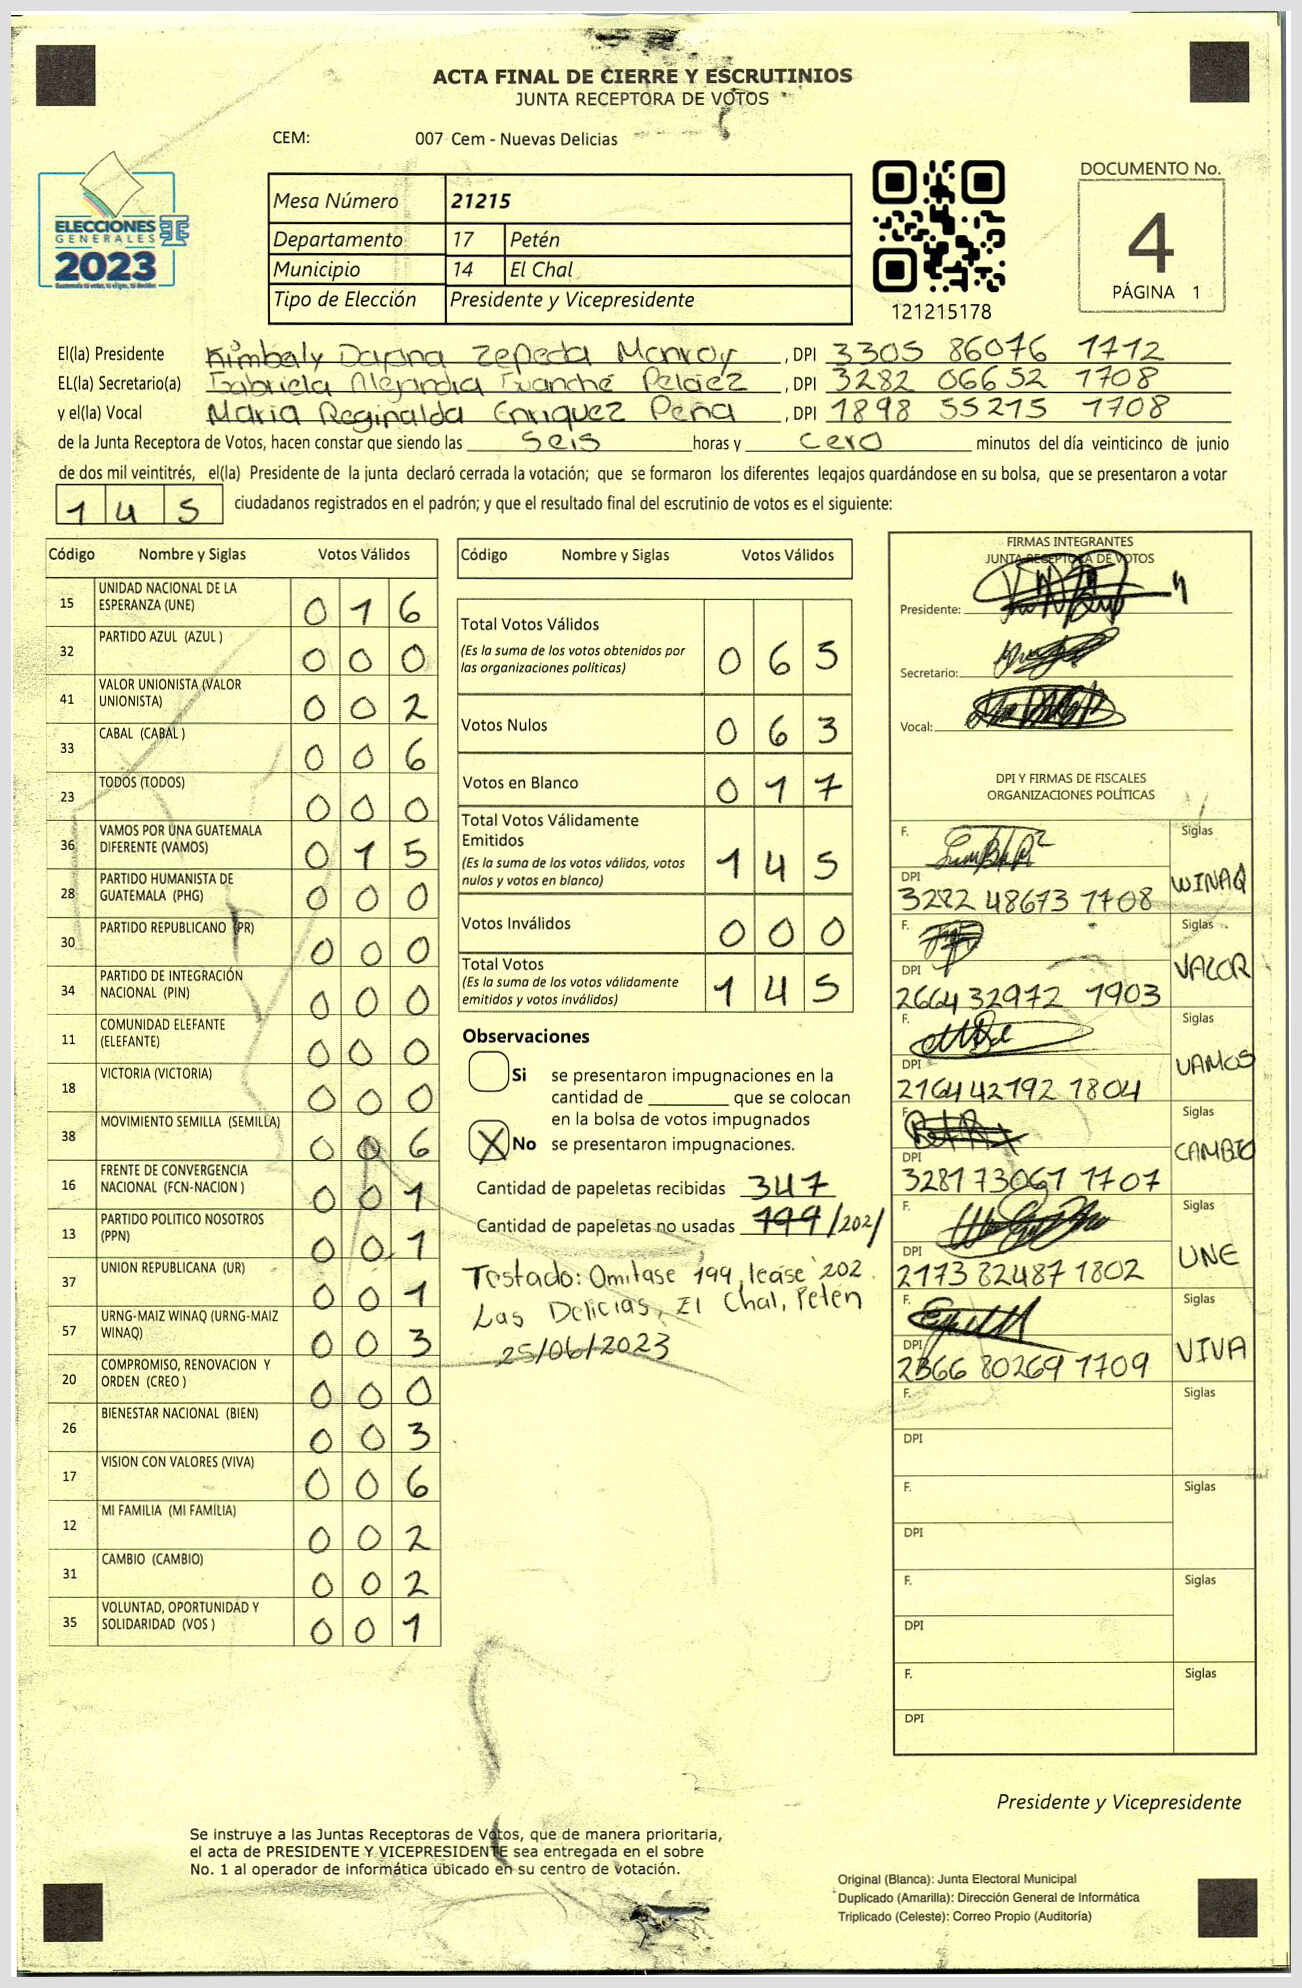 ACTA FINAL DE CIERRE Y ESCRUTINIOS
JUNTA RECEPTORA DE VOTOS
CEM: 007 Cem - Nuevas Delicias
ELECCIONES
GENERALES
2023
Mesa Número 21215
Departamento 17 Petén
Municipio 14 El Chal
Tipo de Elección Presidente y Vicepresidente
121215178
DOCUMENTO No.
4
PÁGINA 1
El(la) Presidente Kimbaly Dapna Zepeda Monroy, DPI 3305 86076 1712
EL(la) Secretario(a) Gabriela Alejandra Ixanché Peláez, DPI 3282 06652 1708
y el(la) Vocal Maria Reginalda Enriquez Peña, DPI 1898 55215 1708
de la Junta Receptora de Votos, hacen constar que siendo las seis horas y cero minutos del día veinticinco de junio
de dos mil veintitrés, el(la) Presidente de la junta declaró cerrada la votación; que se formaron los diferentes legajos guardándose en su bolsa, que se presentaron a votar
145 ciudadanos registrados en el padrón; y que el resultado final del escrutinio de votos es el siguiente:
Código Nombre y Siglas Votos Válidos
15 UNIDAD NACIONAL DE LA ESPERANZA (UNE) 016
32 PARTIDO AZUL (AZUL ) 000
41 VALOR UNIONISTA (VALOR UNIONISTA) 002
33 CABAL (CABAL ) 006
23 TODOS (TODOS) 000
36 VAMOS POR UNA GUATEMALA DIFERENTE (VAMOS) 015
28 PARTIDO HUMANISTA DE GUATEMALA (PHG) 000
30 PARTIDO REPUBLICANO (PR) 000
34 PARTIDO DE INTEGRACIÓN NACIONAL (PIN) 000
11 COMUNIDAD ELEFANTE (ELEFANTE) 000
18 VICTORIA (VICTORIA) 000
38 MOVIMIENTO SEMILLA (SEMILLA) 006
16 FRENTE DE CONVERGENCIA NACIONAL (FCN-NACION ) 001
13 PARTIDO POLITICO NOSOTROS (PPN) 001
37 UNION REPUBLICANA (UR) 001
57 URNG-MAIZ WINAQ (URNG-MAIZ WINAQ) 003
20 COMPROMISO, RENOVACION Y ORDEN (CREO ) 000
26 BIENESTAR NACIONAL (BIEN) 003
17 VISION CON VALORES (VIVA) 006
12 MI FAMILIA (MI FAMILIA) 002
31 CAMBIO (CAMBIO) 002
35 VOLUNTAD, OPORTUNIDAD Y SOLIDARIDAD (VOS ) 001
Código Nombre y Siglas Votos Válidos
Total Votos Válidos 065
(Es la suma de los votos obtenidos por
las organizaciones politicas)
Votos Nulos 063
Votos en Blanco 017
Total Votos Válidamente
Emitidos 145
(Es la suma de los votos válidos, votos
nulos y votos en blanco)
Votos Inválidos 000
Total Votos 145
(Es la suma de los votos válidamente
emitidos y votos inválidos)
Observaciones
Si se presentaron impugnaciones en la
cantidad de ________ que se colocan
en la bolsa de votos impugnados
X No se presentaron impugnaciones.
Cantidad de papeletas recibidas 347
Cantidad de papeletas no usadas 199/202/
Testado: Omitase 199, lease 202.
Las Delicias, El Chal, Petén
25/06/2023
FIRMAS INTEGRANTES
JUNTA RECEPTORA DE VOTOS
Presidente:
Secretario:
Vocal:
DPI Y FIRMAS DE FISCALES
ORGANIZACIONES POLÍTICAS
F. Siglas WINAQ
DPI 3282 48673 1708
F. Siglas VALOR
DPI 2664 32972 1903
F. Siglas VAMOS
DPI 2164 42192 1804
F. Siglas CAMBIO
DPI 3281 73061 1707
F. Siglas UNE
DPI 2173 82487 1802
F. Siglas VIVA
DPI 2366 80269 1709
F. Siglas
DPI
F. Siglas
DPI
F. Siglas
DPI
F. Siglas
DPI
Presidente y Vicepresidente
Se instruye a las Juntas Receptoras de Votos, que de manera prioritaria,
el acta de PRESIDENTE Y VICEPRESIDENTE sea entregada en el sobre
No. 1 al operador de informática ubicado en su centro de votación.
Original (Blanca): Junta Electoral Municipal
Duplicado (Amarilla): Dirección General de Informática
Triplicado (Celeste): Correo Propio (Auditoría)